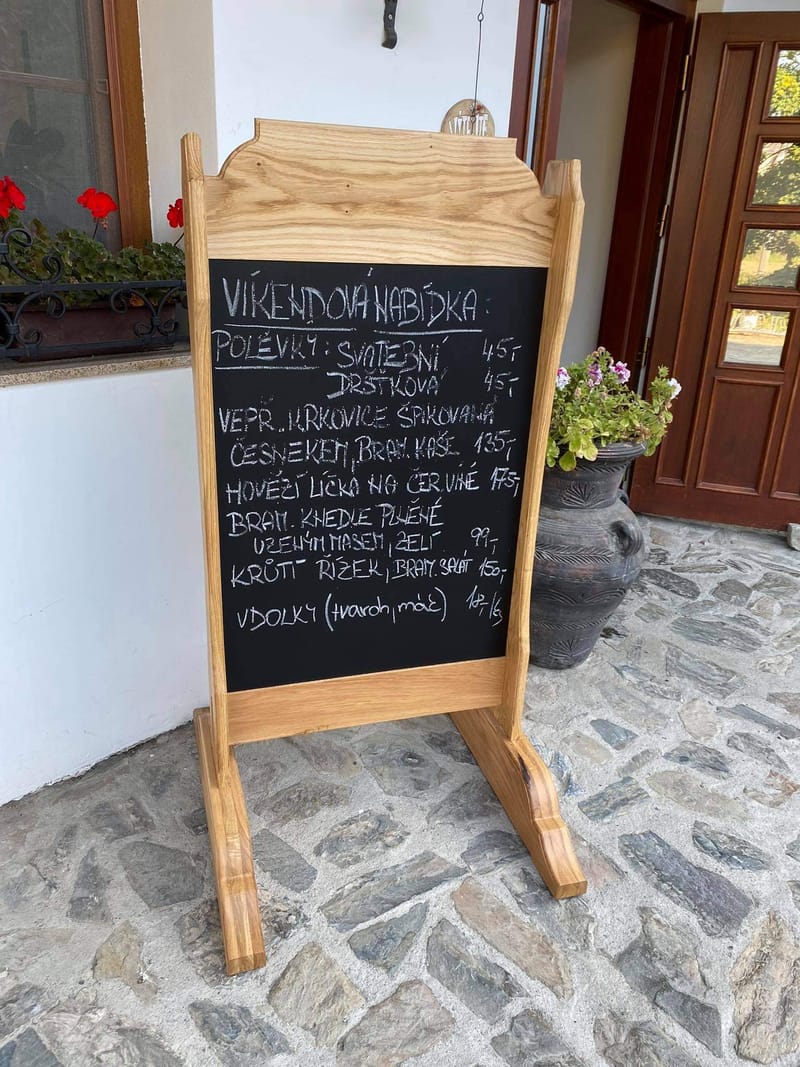 VÍTEJTE
VÍKENDOVÁ NABÍDKA:
POLÉVKY: SVATEBNÍ 45,-
DRŠTKOVÁ 45,-
VEPŘ. KRKOVICE ŠPIKOVANÁ
ČESNEKEM, BRAM. KAŠE 135,-
HOVĚZÍ LÍČKA NA ČER. VÍNĚ 175,-
BRAM. KNEDLE PLNĚNÉ
UZENÝM MASEM, ZELÍ 99,-
KRŮTÍ ŘÍZEK, BRAM. SALÁT 150,-
VDOLKY (tvaroh, máč) 18,-/ks